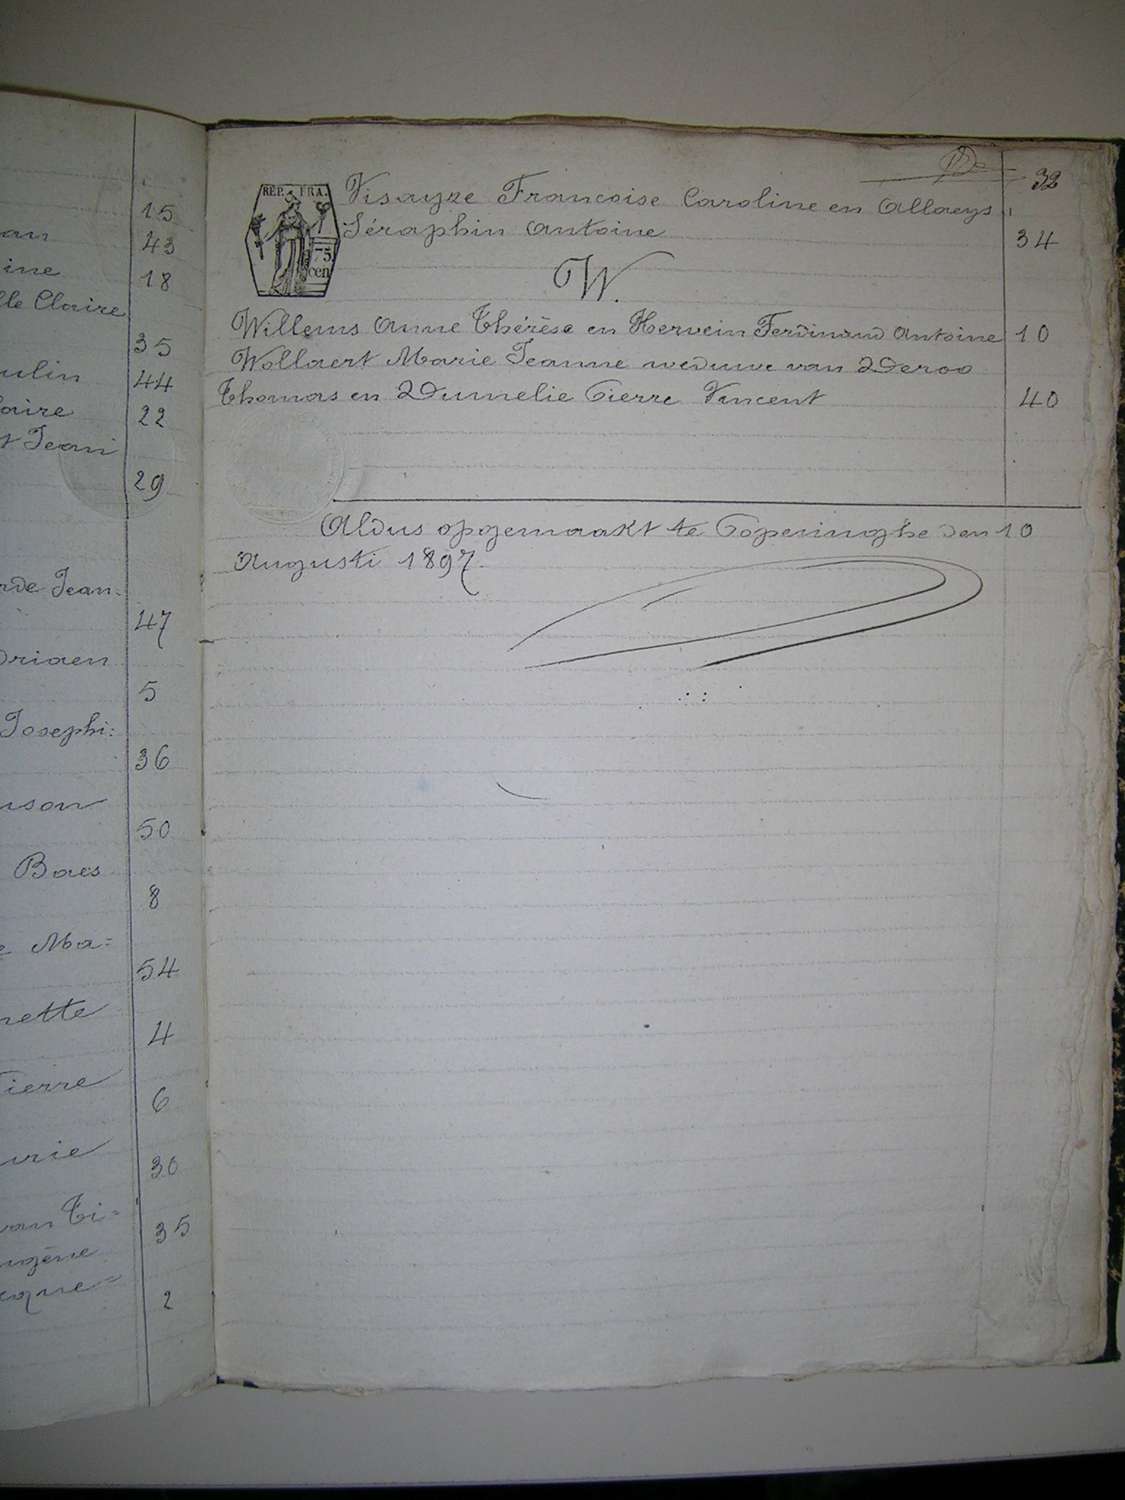 15
43
ine
18
lle Claire
35
ulin
44
aire
22
t Jean
29
rde Jean-
47
driaen
5
Josephi:
36
nson
50
Baes
8
e Ma=
54
nette
4
Pierre
6
urie
30
van Ti=
35
ugène
cque=
2
32
REP. FRA.
75
cen
Visayze Francoise Caroline en Allaeys
Séraphin Antoine 34
W.
Willems Anne Thérèse en Hervein Ferdinand Antoine 10
Wollaert Marie Jeanne weduwe van Deroo
Thomas en Dumelie Pierre Vincent 40
Aldus opgemaakt te Poperinghe den 10
Augusti 1897.